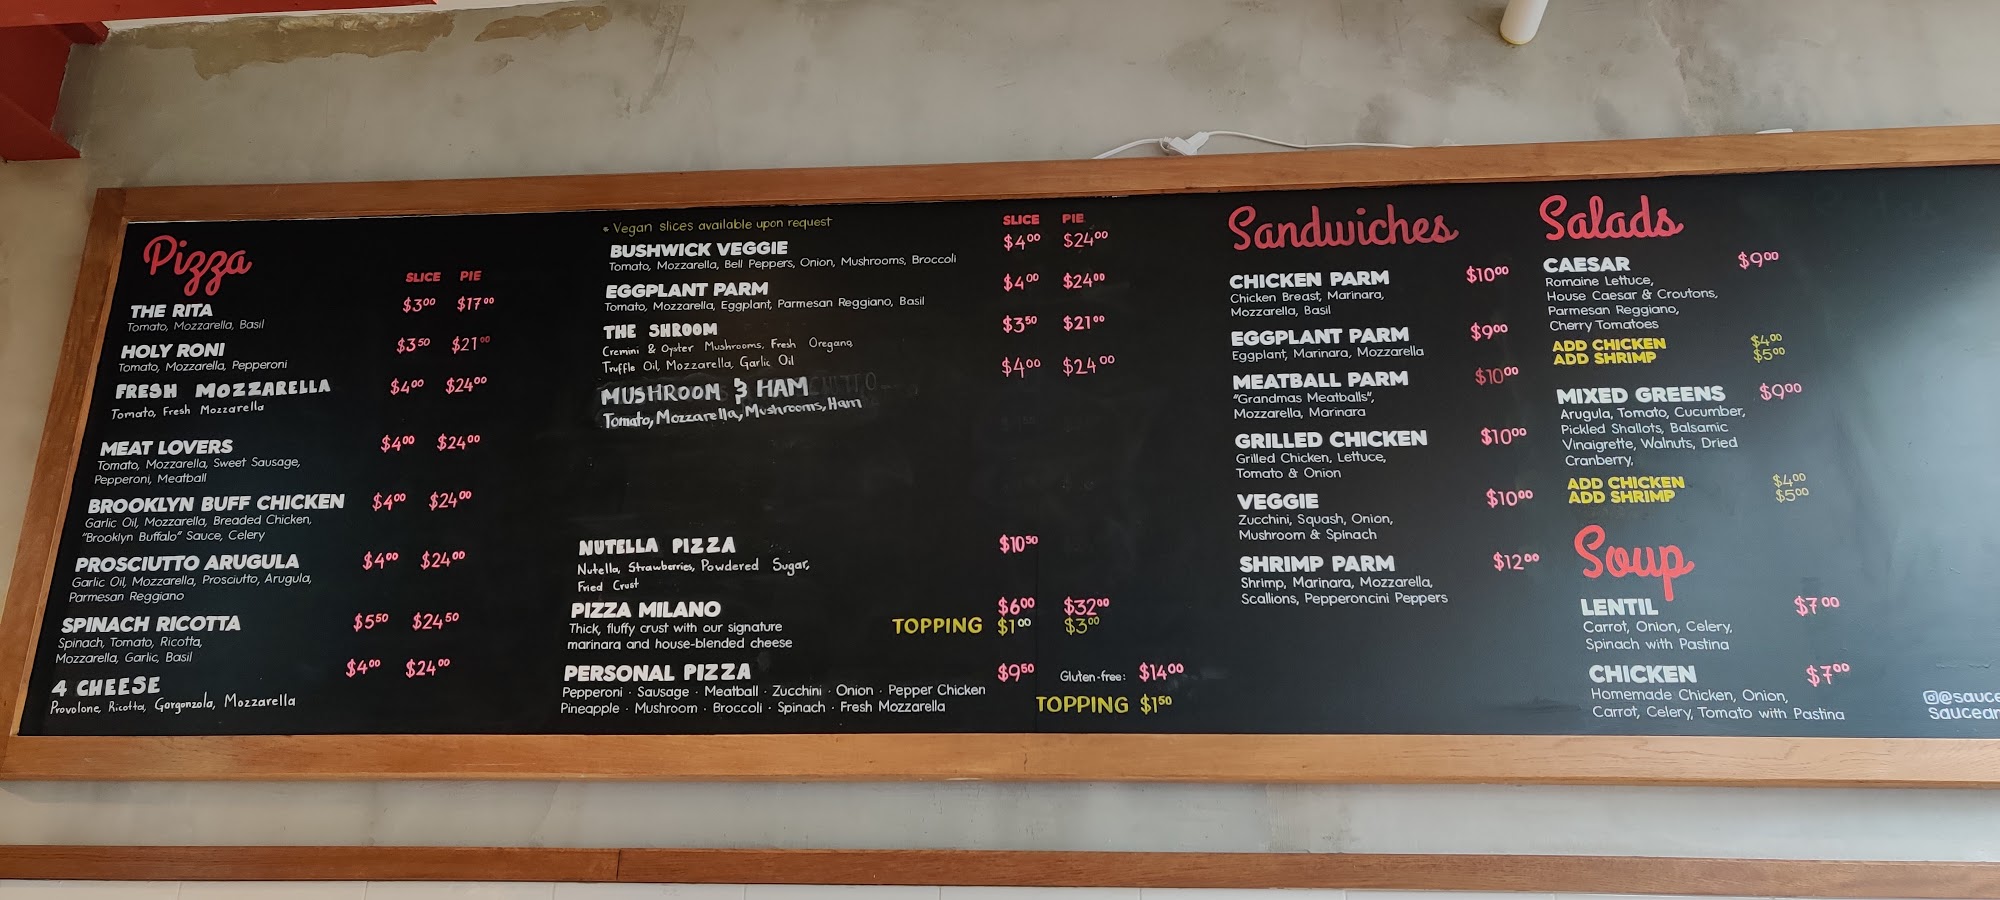 Pizza
SLICE PIE
THE RITA $3⁰⁰ $17⁰⁰
Tomato, Mozzarella, Basil
HOLY RONI $3⁵⁰ $21⁰⁰
Tomato, Mozzarella, Pepperoni
FRESH MOZZARELLA $4⁰⁰ $24⁰⁰
Tomato, Fresh Mozzarella
MEAT LOVERS $4⁰⁰ $24⁰⁰
Tomato, Mozzarella, Sweet Sausage,
Pepperoni, Meatball
BROOKLYN BUFF CHICKEN $4⁰⁰ $24⁰⁰
Garlic Oil, Mozzarella, Breaded Chicken,
"Brooklyn Buffalo" Sauce, Celery
PROSCIUTTO ARUGULA $4⁰⁰ $24⁰⁰
Garlic Oil, Mozzarella, Prosciutto, Arugula,
Parmesan Reggiano
SPINACH RICOTTA $5⁵⁰ $24⁵⁰
Spinach, Tomato, Ricotta,
Mozzarella, Garlic, Basil
4 CHEESE $4⁰⁰ $24⁰⁰
Provolone, Ricotta, Gorgonzola, Mozzarella
* Vegan slices available upon request
SLICE PIE
BUSHWICK VEGGIE $4⁰⁰ $24⁰⁰
Tomato, Mozzarella, Bell Peppers, Onion, Mushrooms, Broccoli
EGGPLANT PARM $4⁰⁰ $24⁰⁰
Tomato, Mozzarella, Eggplant, Parmesan Reggiano, Basil
THE SHROOM $3⁵⁰ $21⁰⁰
Cremini & Oyster Mushrooms, Fresh Oregano,
Truffle Oil, Mozzarella, Garlic Oil
MUSHROOM & HAM $4⁰⁰ $24⁰⁰
Tomato, Mozzarella, Mushrooms, Ham
NUTELLA PIZZA $10⁵⁰
Nutella, Strawberries, Powdered Sugar,
Fried Crust
PIZZA MILANO $6⁰⁰ $32⁰⁰
Thick, fluffy crust with our signature TOPPING $1⁰⁰ $3⁰⁰
marinara and house-blended cheese
PERSONAL PIZZA $9⁵⁰ Gluten-free: $14⁰⁰
Pepperoni · Sausage · Meatball · Zucchini · Onion · Pepper Chicken
Pineapple · Mushroom · Broccoli · Spinach · Fresh Mozzarella TOPPING $1⁵⁰
Sandwiches
CHICKEN PARM $10⁰⁰
Chicken Breast, Marinara,
Mozzarella, Basil
EGGPLANT PARM $9⁰⁰
Eggplant, Marinara, Mozzarella
MEATBALL PARM $10⁰⁰
"Grandmas Meatballs",
Mozzarella, Marinara
GRILLED CHICKEN $10⁰⁰
Grilled Chicken, Lettuce,
Tomato & Onion
VEGGIE $10⁰⁰
Zucchini, Squash, Onion,
Mushroom & Spinach
SHRIMP PARM $12⁰⁰
Shrimp, Marinara, Mozzarella,
Scallions, Pepperoncini Peppers
Salads
CAESAR $9⁰⁰
Romaine Lettuce,
House Caesar & Croutons,
Parmesan Reggiano,
Cherry Tomatoes
ADD CHICKEN $4⁰⁰
ADD SHRIMP $5⁰⁰
MIXED GREENS $9⁰⁰
Arugula, Tomato, Cucumber,
Pickled Shallots, Balsamic
Vinaigrette, Walnuts, Dried
Cranberry,
ADD CHICKEN $4⁰⁰
ADD SHRIMP $5⁰⁰
Soup
LENTIL $7⁰⁰
Carrot, Onion, Celery,
Spinach with Pastina
CHICKEN $7⁰⁰
Homemade Chicken, Onion,
Carrot, Celery, Tomato with Pastina
@sauce
Saucear